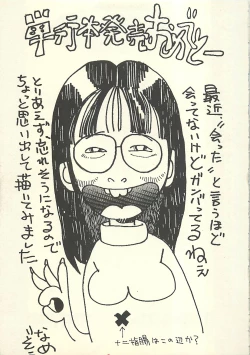 単行本発売おめでとー
最近、“会った”と言うほど
会ってないけどガンバってるねぇ
とりあえず、忘れそうになるので
ちょっと思い出して描いてみました。
十二指腸はこの辺か?